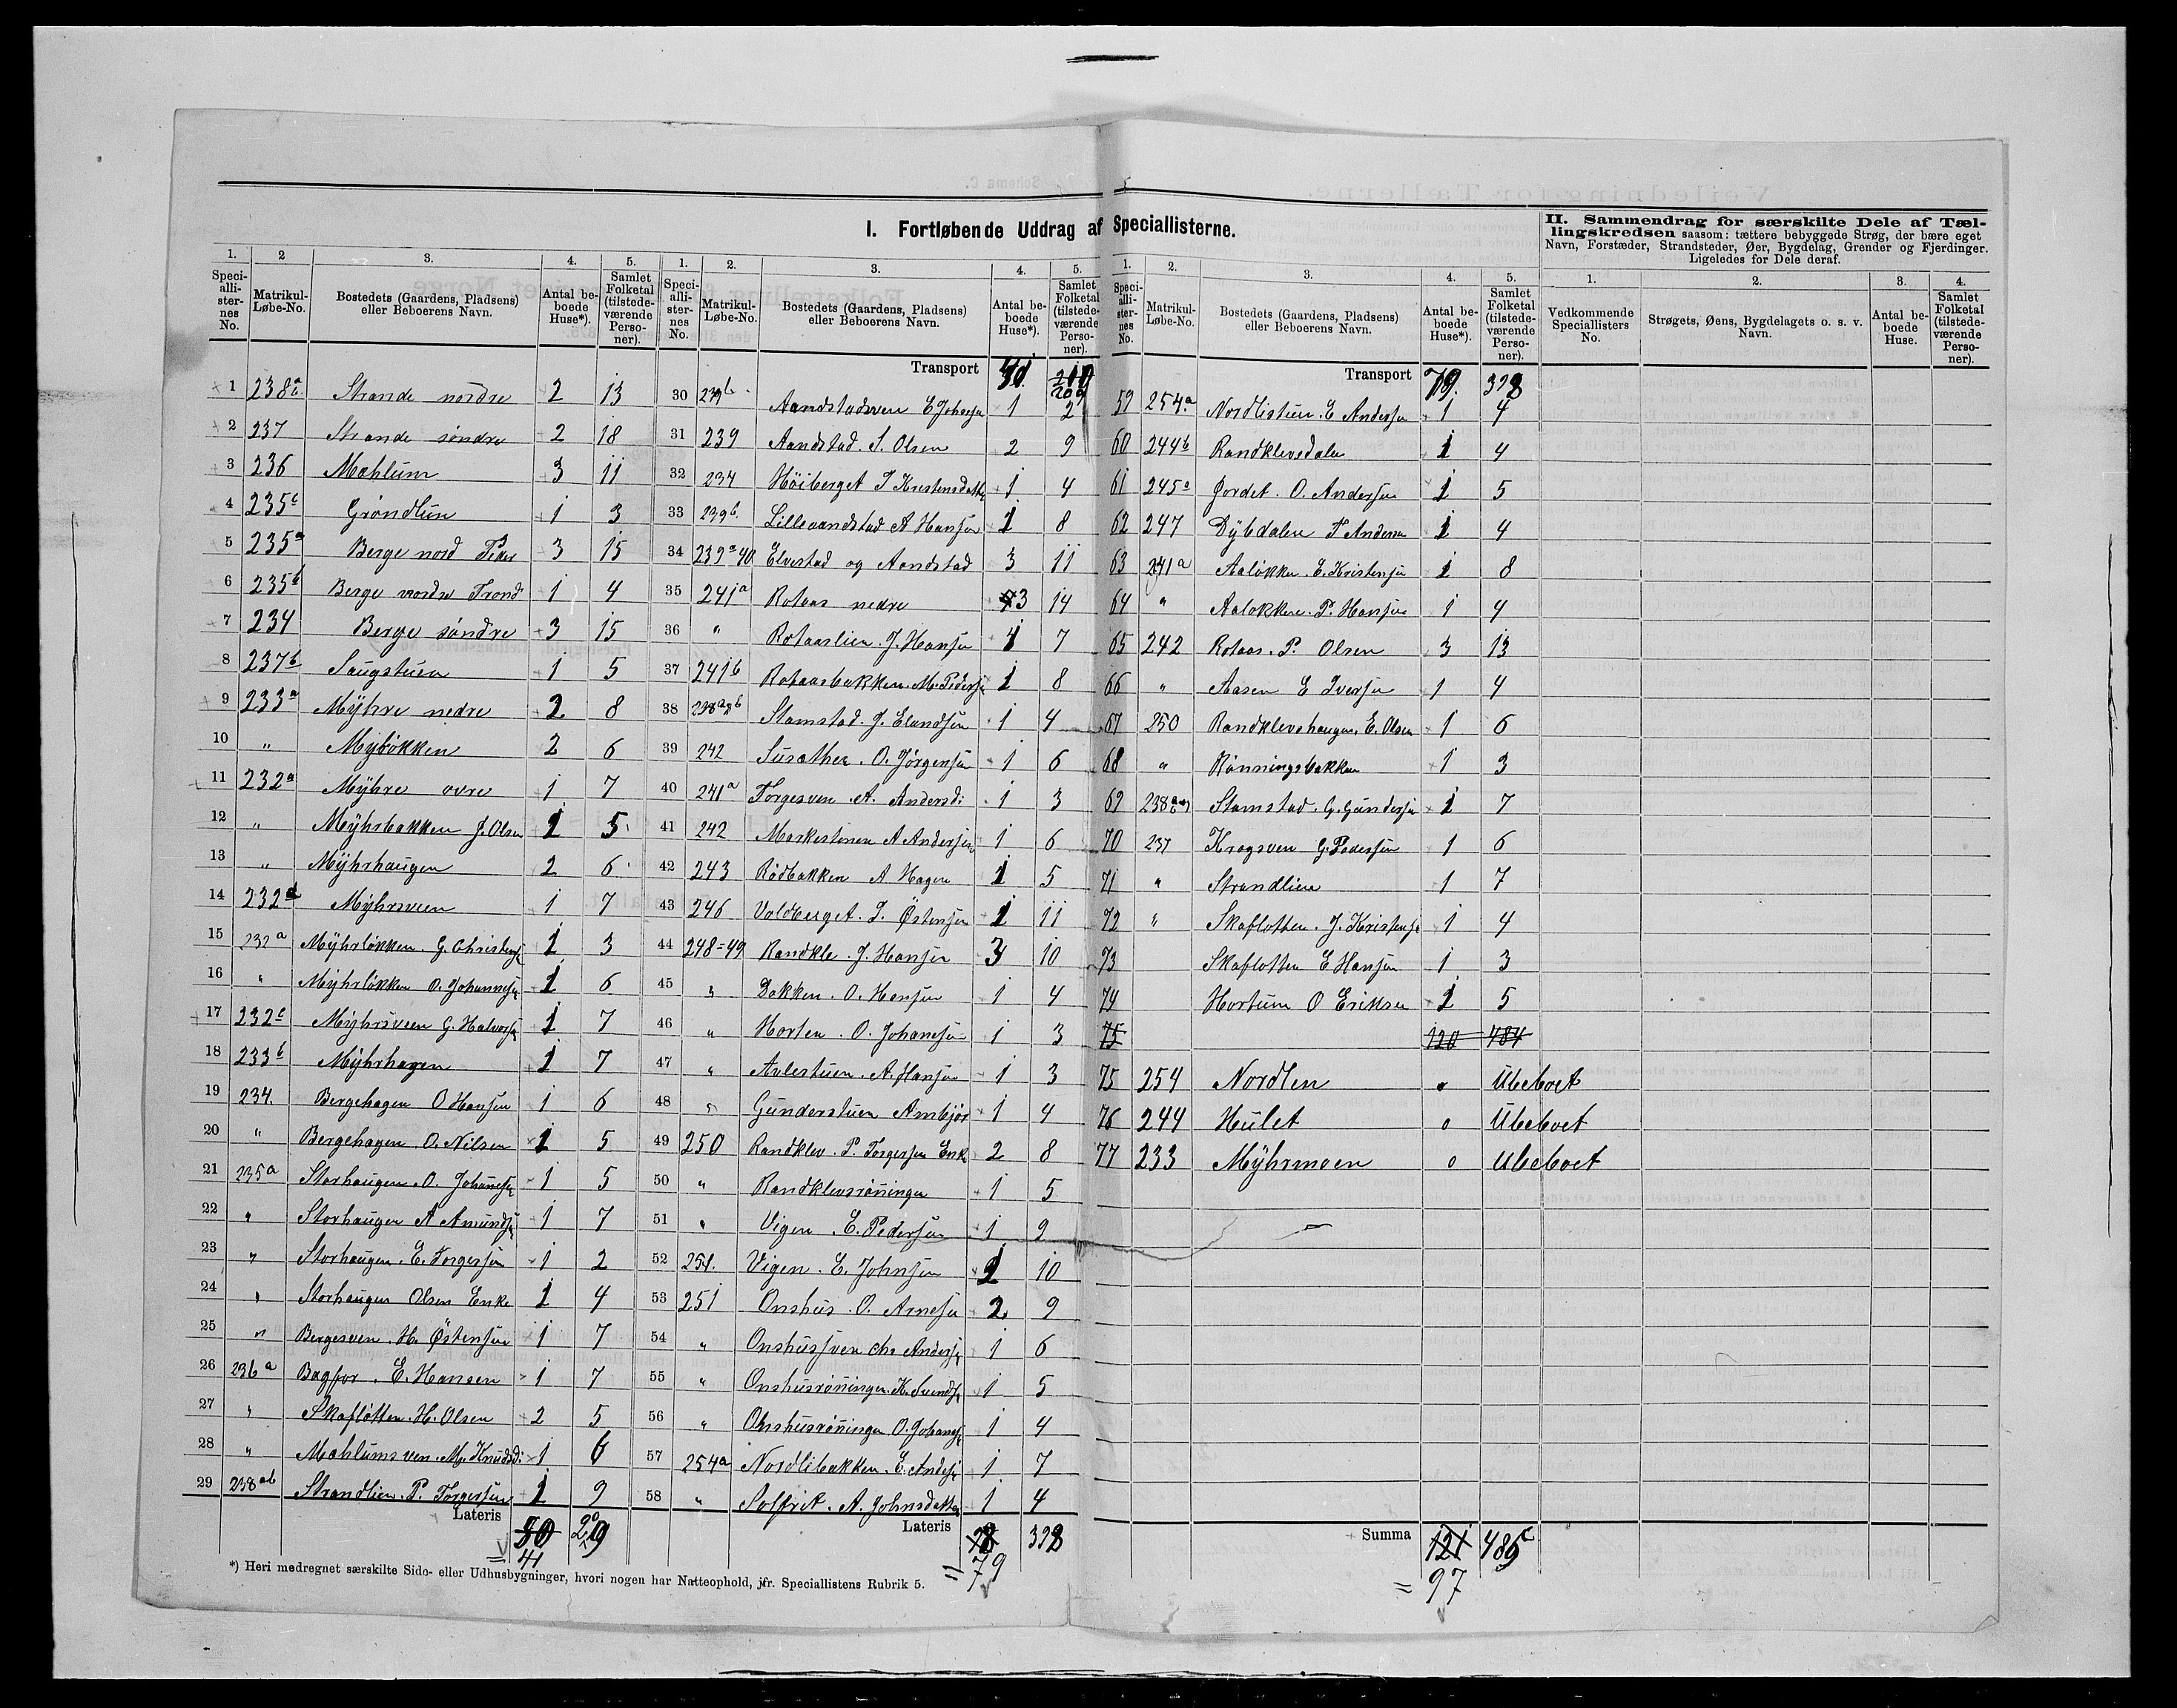 I. Fortløbende Uddrag af Speciallisterne.
II. Sammendrag for særskilte Dele af Tæl-
lingskredsen saasom: tættere bebyggede Strøg, der bære eget
Navn, Forstæder, Strandsteder, Øer, Bygdelag, Grender og Fjerdinger.
Ligeledes for Dele deraf.
1. 2 3. 4. 5.
Speci-alli-ster-nes No. Matrikul-Løbe-No. Bostedets (Gaardens, Pladsens) eller Beboerens Navn. Antal be-boede Huse*). Samlet Folketal (tilstede-værende Perso-ner).
1 238 Strande nordre 2 13
2 237 Strande søndre 2 18
3 236 Mæhlum 3 11
4 235c Grøndlien 1 3
5 235a Berge nord Peder 3 15
6 235b Berge nordre Trond 1 4
7 234 Berge søndre 3 15
8 237b Saugstuen 1 5
9 233a Mÿhre nedre 2 8
10 " Mÿløkken 2 6
11 232a Mÿhre øvre 1 7
12 " Mÿhrbakken J. Olsen 1 5
13 " Mÿhrhaugen 2 6
14 232d Mÿhrsveen 1 7
15 232a Mÿhrløkken G. Christensen 1 3
16 " Mÿhrløkken O. Johannesen 1 6
17 232c Mÿhrsveen G. Halvorsen 1 7
18 233b Mÿhrhagen 1 7
19 234. Bergehagen O Hansen 1 6
20 " Bergehagen O. Nilsen 1 5
21 235a Storhaugen O. Johannesen 1 5
22 " Storhaugen A Amundsen 1 7
23 " Storhaugen E. Torgersen 1 2
24 " Storhaugen Olsen Enke 1 4
25 " Bergesven. H. Østensen 1 7
26 236a Bagfor. E. Hansen 1 7
27 " Skafløtten. H. Olsen 2 5
28 " Mahlumsven. M. Knudsd: 1 6
29 238ab Strandlien. P. Torgersen 1 9
Lateris 50 209
= 41
1. 2. 3. 4. 5.
Speci-alli-ster-nes No. Matrikul-Løbe-No. Bostedets (Gaardens, Pladsens) eller Beboerens Navn. Antal be-boede Huse*). Samlet Folketal (tilstede-værende Perso-ner).
Transport 41. 210 209
30 239b Aandstadsven E Johnsen 1 2
31 239 Aandstad. S. Olsen 2 9
32 234 Høiberget I Kristensdatter 1 4
33 239b. Lilleaandstad A Hansen 1 8
34 239a 40 Elvestad og Aandstad 3 11
35 241a Rolaas nedre 3 14
36 " Rolaaslien. J. Hansen 1 7
37 241b Rolaasbakken. M. Pedersen 1 8
38 238ab Stamstad. J. Elandsen 1 4
39 242 O. Jørgensen 1 6
40 241a Torgesven A. Andersd: 1 3
41 242 A Andersen 1 6
42 243 Rødbakken A Hagen 1 5
43 246 Voldberget. I. Østensen 1 11
44 248=49 Randkle. J. Hansen 3 10
45 " Dokken. O. Hansen 1 4
46 " Horten. O. Johannesen 1 3
47 " Avlestuen. A. Hansen 1 3
48 " Gunderstuen Ambjør 1 4
49 250 Randklev. P. Torgersen Enk 2 8
50 " Randklevsrønningen 1 5
51 " Vigen. E. Pedersen 1 9
52 251. Vigen. E. Johnsen 1 10
53 251 Onshus. O. Arnesen 2 9
54 " Onshussven Chr Andersen 1 6
55 " Onshusrønningen. K. Svendsen 1 5
56 " Onshusrønningen O. Johansen 1 4
57 254a Nordlibakken. E. Andersen 1 7
58 " Solfrit. A. Johnsdatter 1 4
Lateris 78 328
= 79
*) Heri medregnet særskilte Side- eller Udhusbygninger, hvori nogen har Natteophold, jfr. Speciallistens Rubrik 5.
1. 2. 3. 4. 5.
Speci-alli-ster-nes No. Matrikul-Løbe-No. Bostedets (Gaardens, Pladsens) eller Beboerens Navn. Antal be-boede Huse*). Samlet Folketal (tilstede-værende Perso-ner).
Transport 79. 328
59 254a Nordlistuen. E Andersen 1 4
60 244b Randklevedalen 1 4
61 245a Jordet. O. Andersen 1 5
62 247 Dÿbdalen T Andersen 1 4
63 241a Aaløkken. E. Kristensen 1 8
64 " Aaløkken. P. Hansen 1 4
65 242 Rolaas. P. Olsen 3 13
66 " Aasen E Iversen 1 4
67 250 Randklevshaugen. E. Olsen 1 6
68 " Rønningsbakken 1 3
69 238 Stamstad. G. Gundersen 1 7
70 237 Kragsven G. Pedersen 1 6
71 " Strandlien 1 7
72 " Skaflotten. J. Kristensen 1 4
73 Skaflotten E Hansen 1 3
74 Hortum O Eriksen 1 5
75 120 484
75 254 Nordlen " Ubeboet
76 244 Hulet 0 Ubeboet
77 233 Mÿhrmoen 0 Ubeboet
Summa 121 485
= 97
1. 2. 3. 4.
Vedkommende Speciallisters No. Strøgets, Øens, Bygdelagets o. s. v. Navn. Antal be-boede Huse. Samlet Folketal (tilstede-værende Perso-ner).